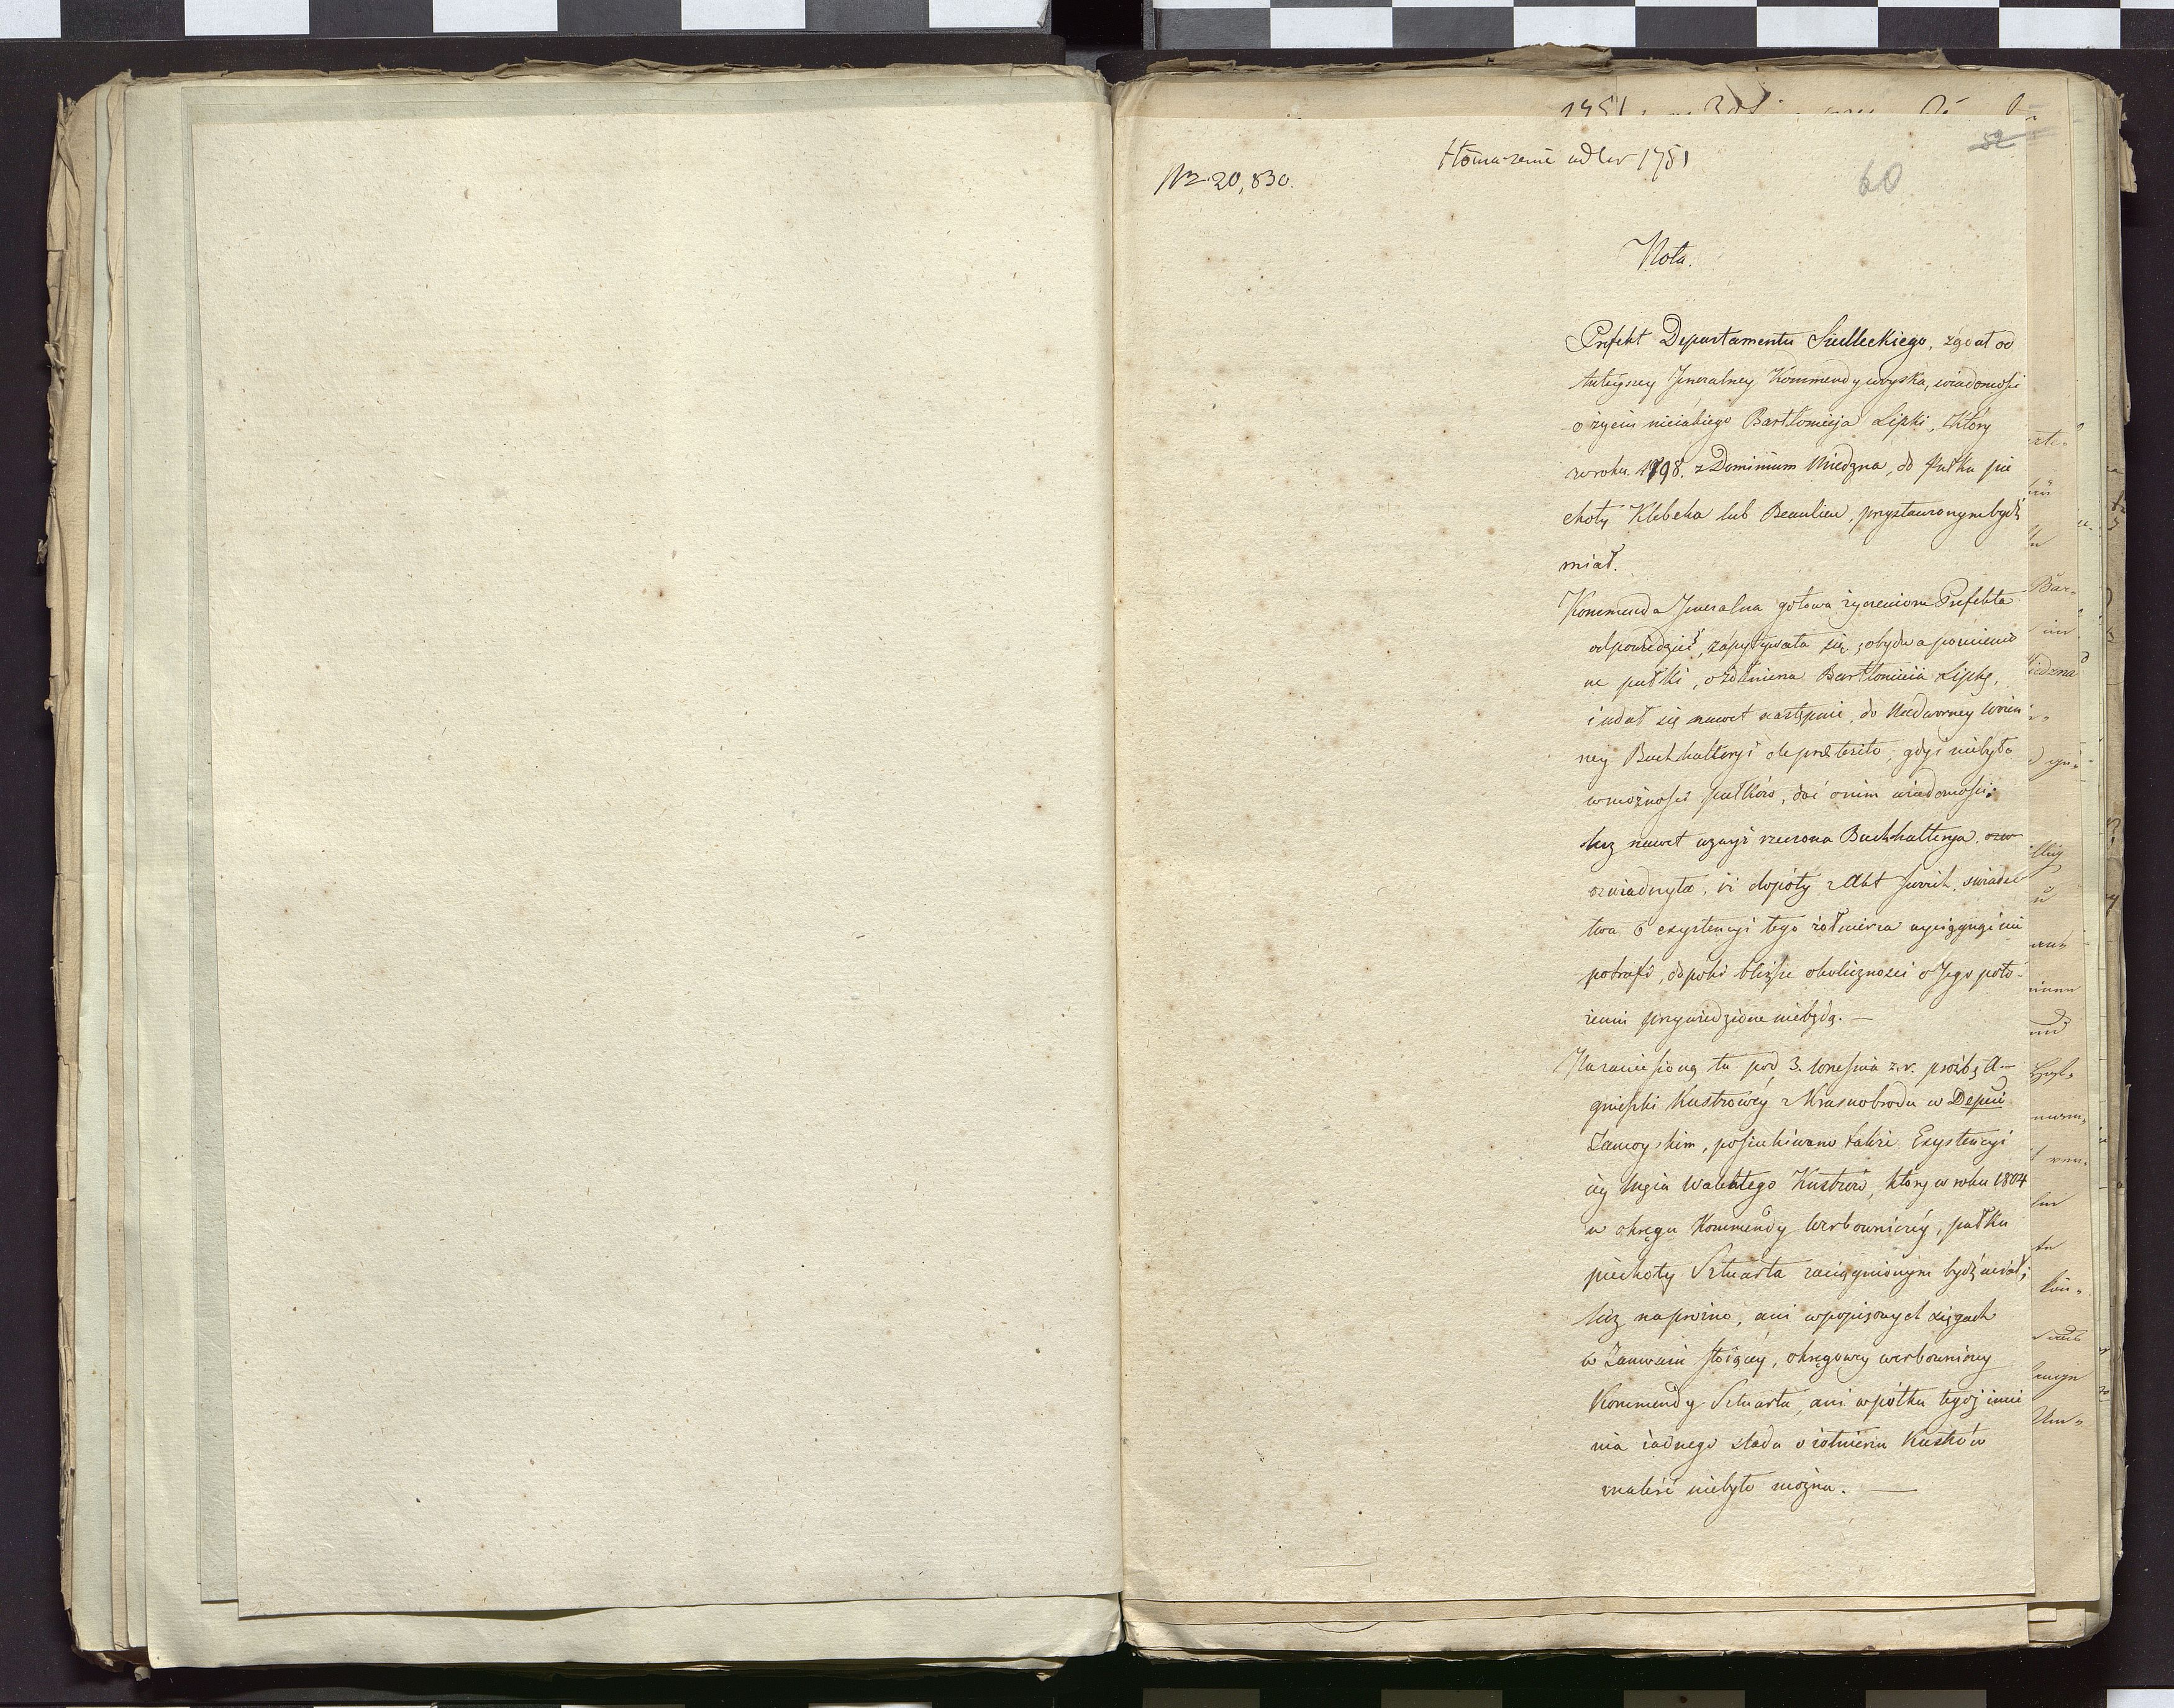 Tłomaczenie ad Nr 1751
52
Nr 20,830.
60
Nota.
Prefekt Departamentu Siedleckiego, żądał od
tuteyszey Jeneralney Kommendy woyska, wiadomości
o życiu nieiakiego Bartłomieja Lipki, który
w roku. 1798. z Dominium Miedzna, do Pułku pie
choty Klebeka lub Beaulieu, przystawionym bydź
miał.
Kommenda Jeneralna gotowa życzeniom Prefekta
odpowiedzieć, zapytywała się, obydwa pomienio
ne pułki, o żołnierza Bartłomieia Lipkę,
i udał się nawet następnie, do Nadworney Woien
ney Buchhalteryi de præterito, gdyż niebyło
w możności pułków, dać o nim wiadomości;
lecz nawet wzwyż rzeczona Buchhalterya, ozw
oświadczyła, iż dopóty z Akt swoich, świadec
twa o exystencyi tego żołnierza wyciągnąć nie
potrafi, dopoki bliższe okoliczności o Jego poło-
żeniu przywiedzione niebędą. —
Na zaniesioną tu pod 3. Września z. r. prośbę A-
gnieszki Kustrowéy z Krasnobrodu w Depcie
Zamoyskim, poszukiwano także Exystencyi
iéy Męża Walentego Kustrów, który w roku 1804
w okręgu Kommendy Werbowniczéy, pułku
piechoty Sztuarta zaciągnionym bydź miał;
lecz napróżno, ani w popisowych xięgach
w Zamościu stoiącéy, okręgowey werbowniczey
Kommendy Sztuarta, ani w półku tegoż imie
nia żadnego śladu o żołnierzu Kustrów
znaleść niebyło można. —